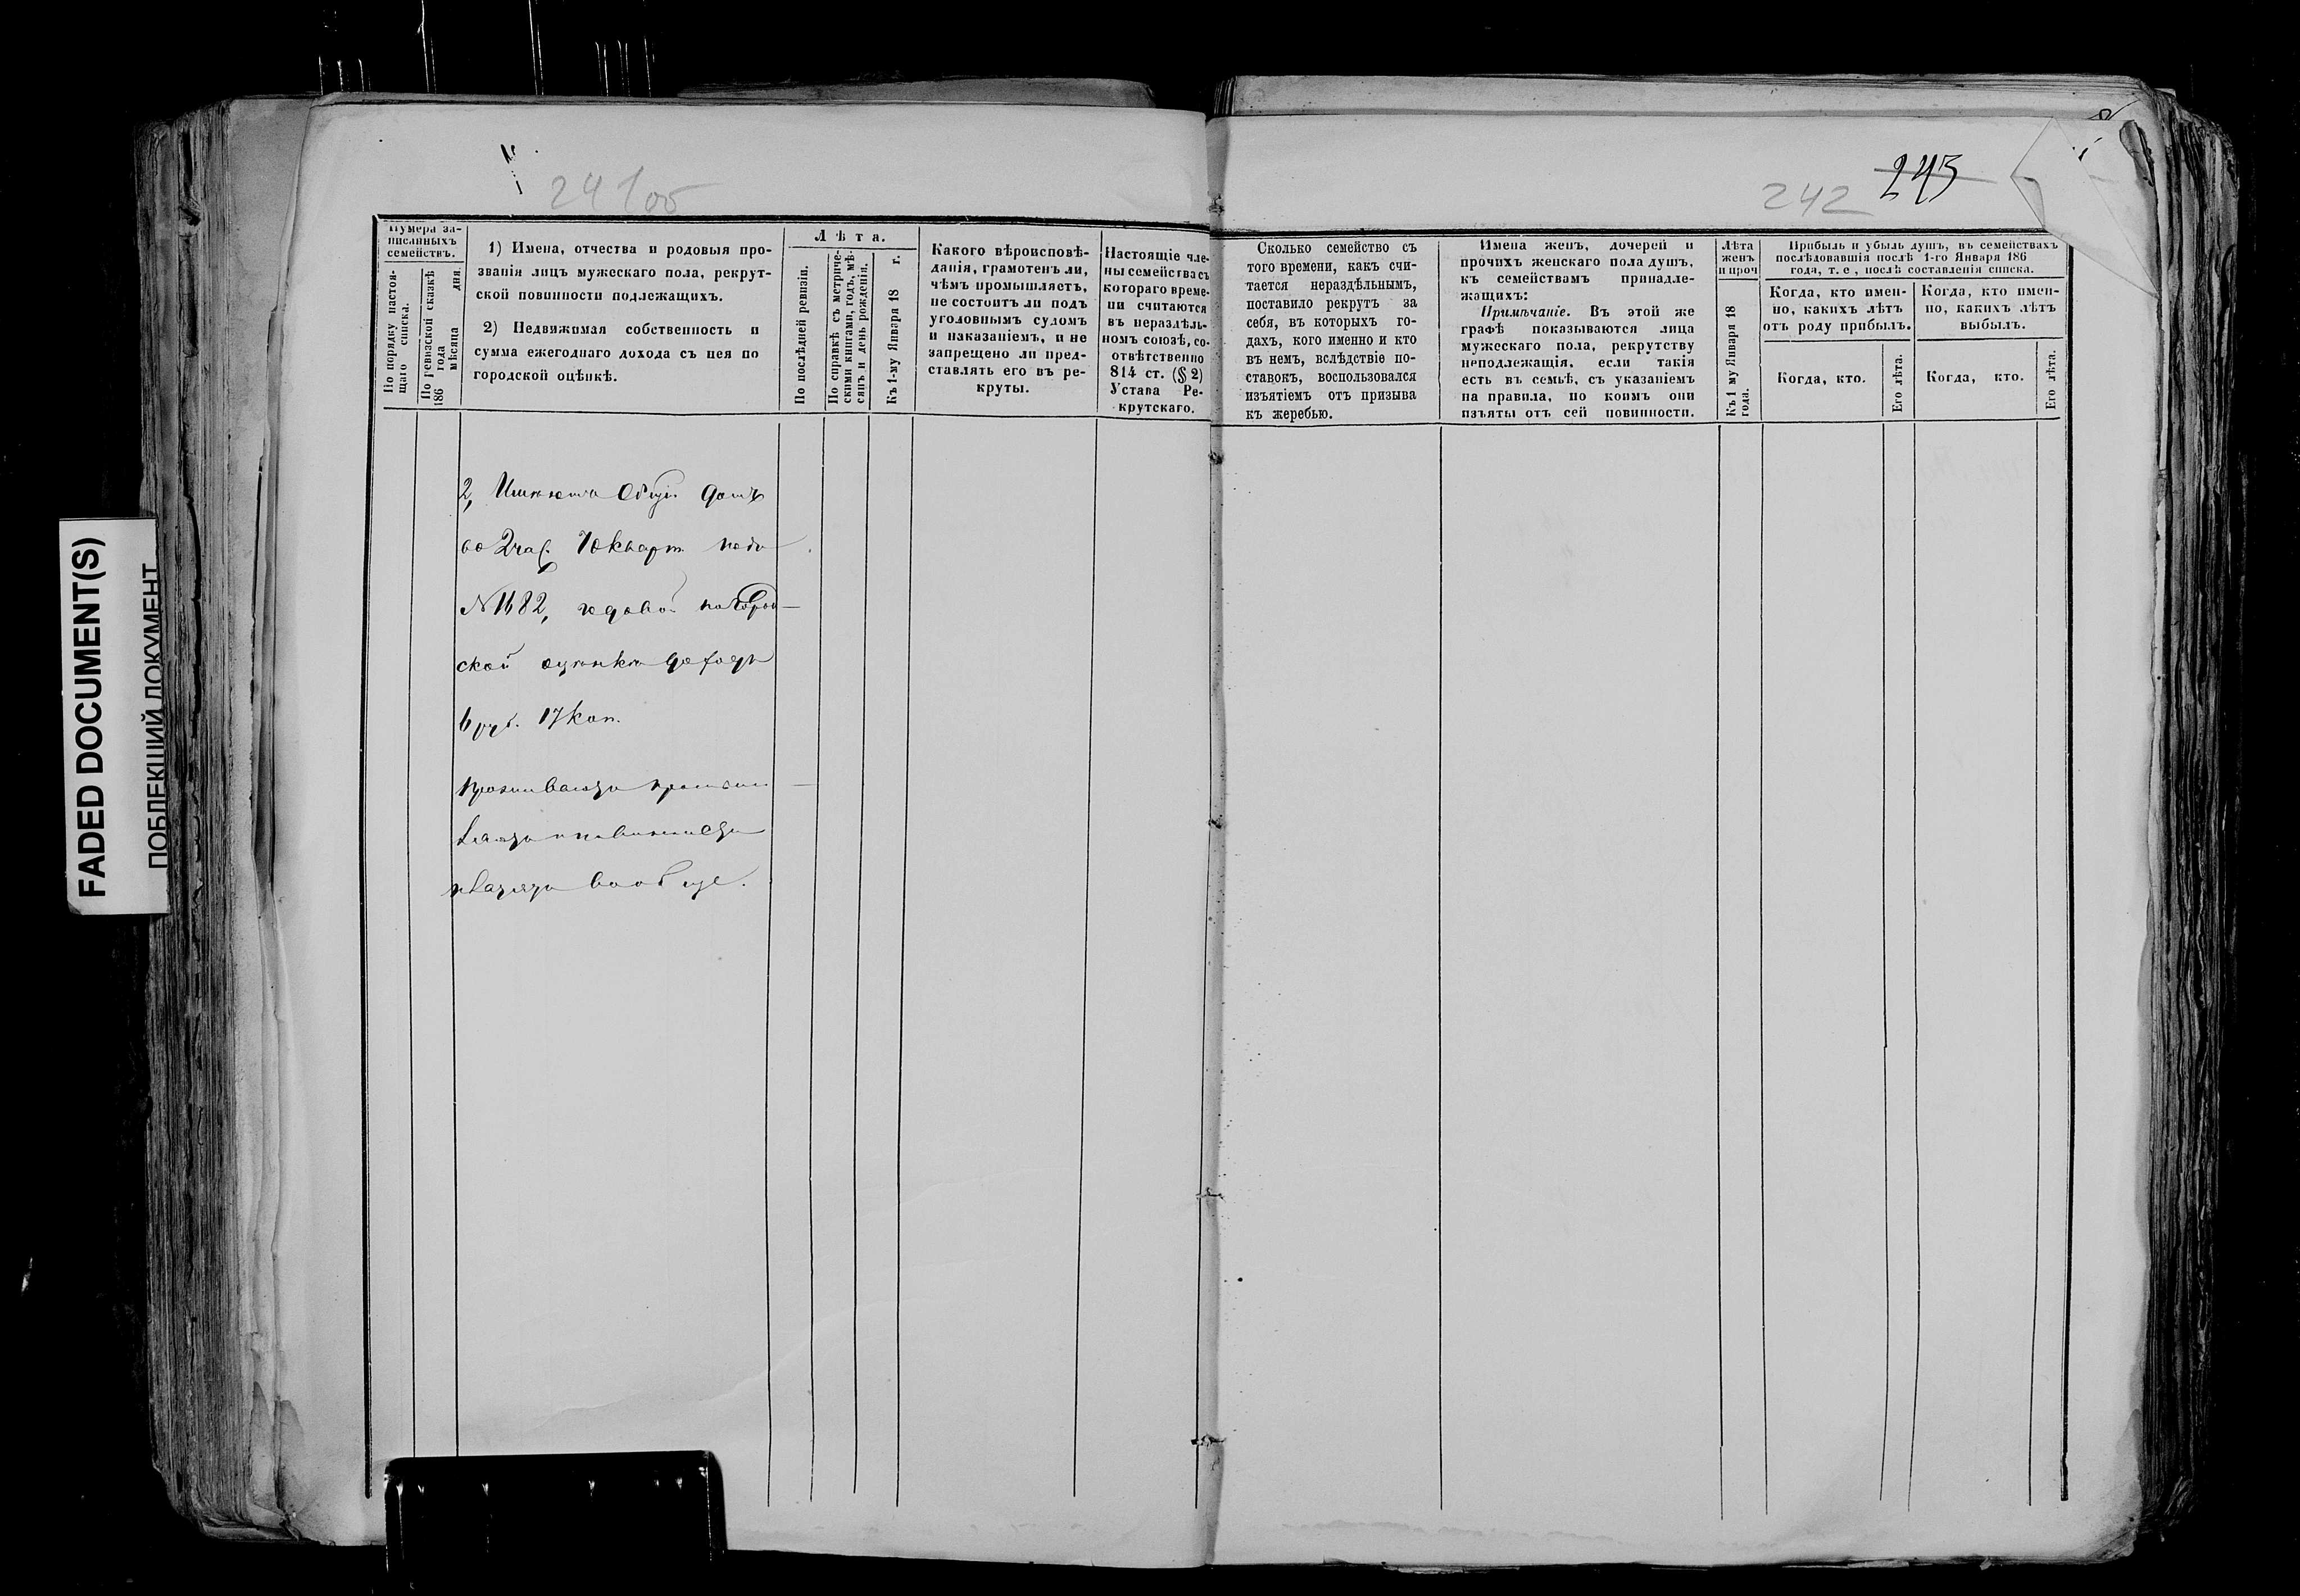 FADED DOCUMENT(S)
ПОБЛЕКШИЙ ДОКУМЕНТ
241об
242 243
Нумера за-
писанныхъ
семействъ.
По порядку настоя-
щаго списка.
По ревизской сказкѣ
186 года мѣсяца дня.
1) Имена, отчества и родовыя про-
званія лицъ мужескаго пола, рекрут-
ской повинности подлежащихъ.
2) Недвижимая собственность и
сумма ежегоднаго дохода съ нея по
городской оцѣнкѣ.
Лѣта.
По послѣдней ревизіи.
По справкѣ съ метриче-
скими книгами, годъ, мѣ-
сяцъ и день рожденія.
Къ 1-му Января 18 г.
Какого вѣроисповѣ-
данія, грамотенъ ли,
чѣмъ промышляетъ,
не состоитъ ли подъ
уголовнымъ судомъ
и наказаніемъ, и не
запрещено ли пред-
ставлять его въ ре-
круты.
Настоящіе чле-
ны семейства съ
котораго време-
ни считаются
въ нераздѣль-
номъ союзѣ, со-
отвѣтственно
814 ст. (§ 2)
Устава Ре-
крутскаго.
Сколько семейство съ
того времени, какъ счи-
тается нераздѣльнымъ,
поставило рекрутъ за
себя, въ которыхъ го-
дахъ, кого именно и кто
въ немъ, вслѣдствіе по-
ставокъ, воспользовался
изъятіемъ отъ призыва
къ жеребью.
Имена женъ, дочерей и
прочихъ женскаго пола душъ,
къ семействамъ принадле-
жащихъ:
Примѣчаніе. Въ этой же
графѣ показываются лица
мужескаго пола, рекрутству
неподлежащія, если такія
есть въ семьѣ, съ указаніемъ
на правила, по коимъ они
изъяты отъ сей повинности.
Лѣта
женъ
и проч
Къ 1 му Января 18
года.
Прибыль и убыль душъ, въ семействахъ
послѣдовавшія послѣ 1-го Января 186
года, т. е, послѣ составленія списка.
Когда, кто имен-
но, какихъ лѣтъ
отъ роду прибылъ.
Когда, кто.
Его лѣта.
Когда, кто имен-
но, какихъ лѣтъ
выбылъ.
Когда, кто.
Его лѣта.
2, Имѣютъ общій домъ
во 2 час. 10 кварт. подъ
№ 1682, годовой по город
ской оцѣнкѣ доходъ
6 руб. 17 коп.
вообще.